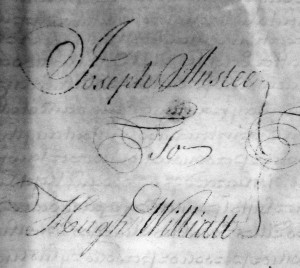 Joseph Anslee
To
Hugh Williatt